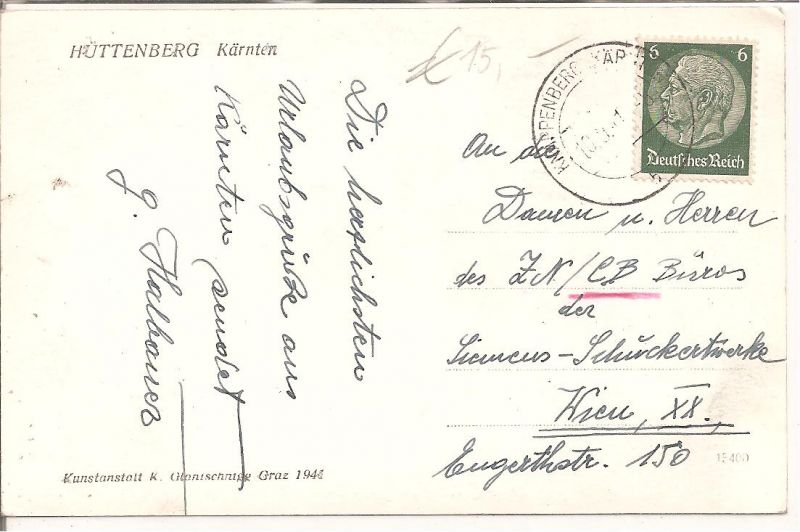 HÜTTENBERG Kärnten
€ 15,-
Die herzlichsten
Urlaubsgrüße aus
Kärnten sendet
Kunstanstalt K. Glantschnigg Graz 1944
KNAPPENBERG
6 6
Deutsches Reich
An die
Damen u. Herren
des ZN/CB Büros
der
Siemens-Schuckertwerke
Wien, XX.,
Engerthstr. 150
15400